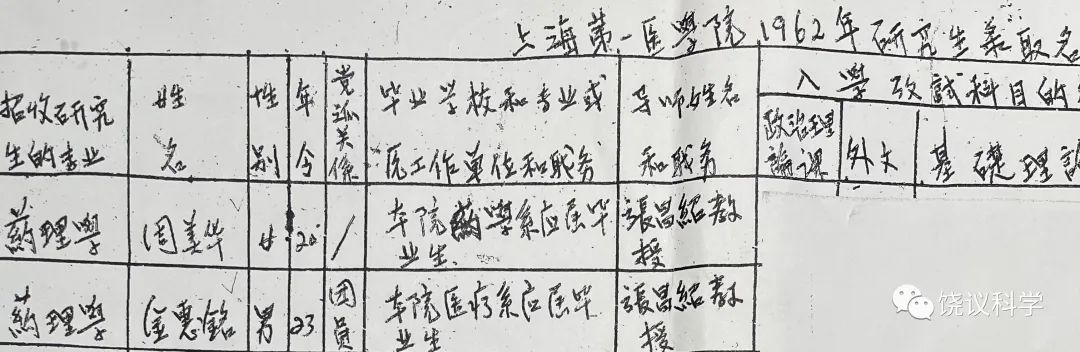 上海第一医學院1962年研究生录取名
招收研究生的专业
姓名
性别
年令
党派关係
毕业学校和专业或原工作单位和职务
导师姓名和职务
入學攷試科目的
政治理論课
外文
基礎理論
葯理學
周美华
女
20
/
本院葯學系应届毕业生.
張昌紹教授
葯理學
金惠銘
男
23
团员
本院医疗系应届毕业生
張昌紹教授
饶议科学